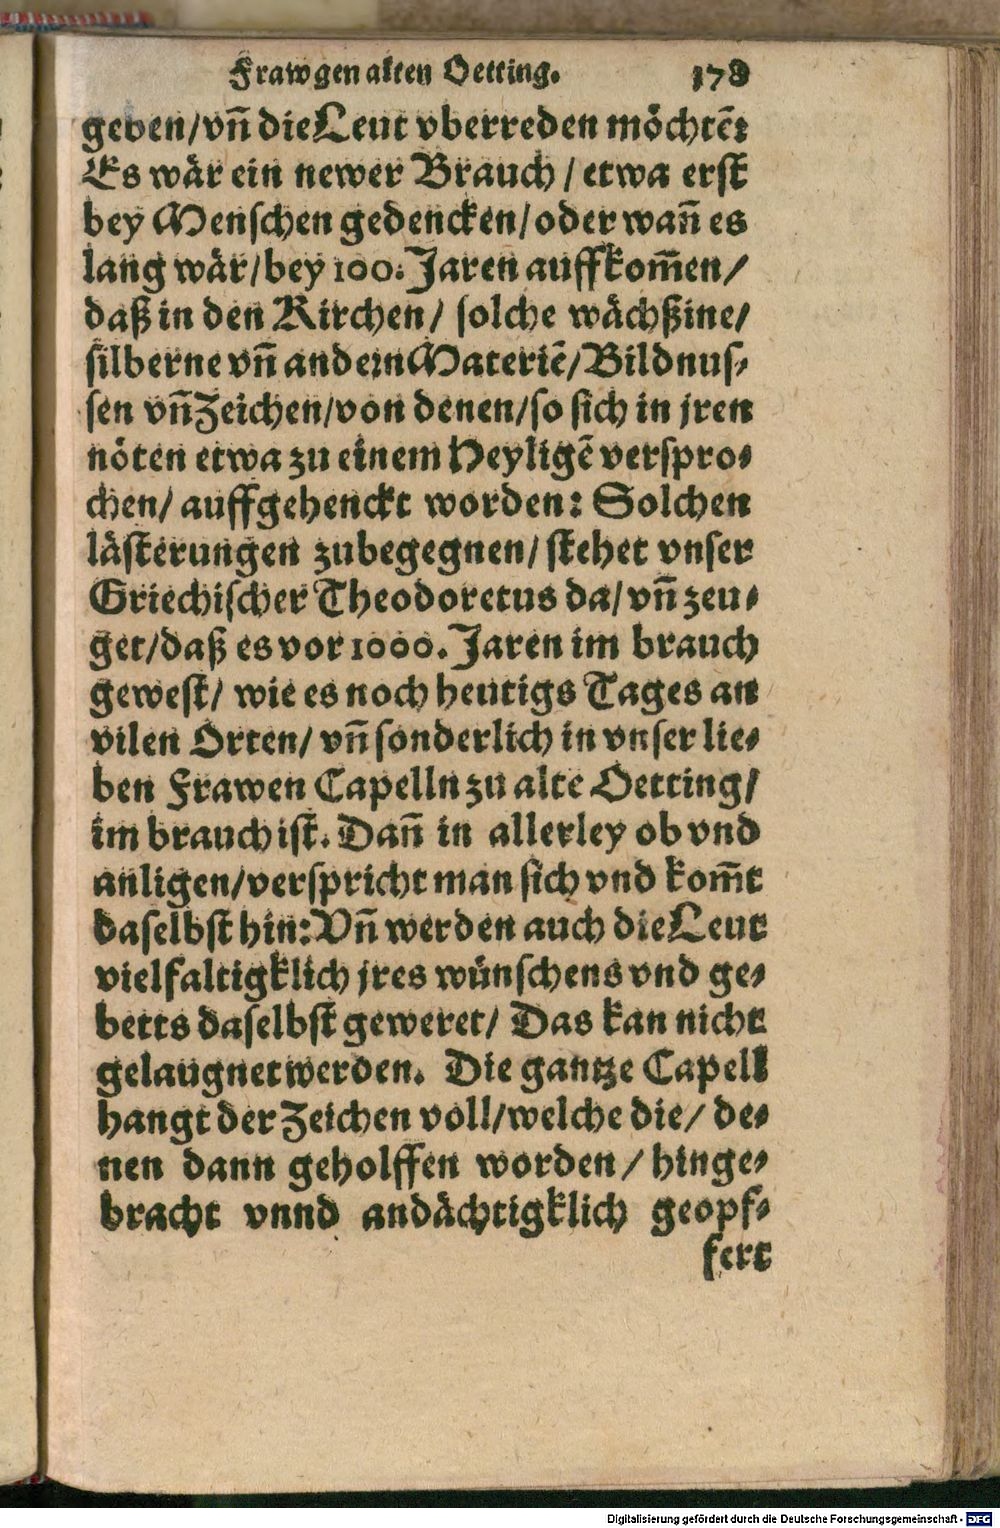 Frawgen alten Oetting. 178
geben/vn̄ die Leut vberreden möchtē:
Es wär ein newer Brauch / etwa erst
bey Menschen gedencken/oder wan̄ es
lang wär/bey 100. Jaren auffkom̄en/
daß in den Kirchen/ solche wächßine/
silberne vn̄ andern Materiē/Bildnus-
sen vn̄ Zeichen/von denen/so sich in jren
nöten etwa zu einem Heyligē verspro-
chen/ auffgehenckt worden: Solchen
lästerungen zubegegnen/ stehet vnser
Griechischer Theodoretus da/ vn̄ zeu-
get/daß es vor 1000. Jaren im brauch
gewest/ wie es noch heutigs Tages an
vilen Orten/ vn̄ sonderlich in vnser lie-
ben Frawen Capelln zu alte Oetting/
im brauch ist. Dan̄ in allerley ob vnd
anligen/verspricht man sich vnd kom̄t
daselbst hin: Vn̄ werden auch die Leut
vielfaltigklich jres wünschens vnd ge-
betts daselbst geweret/ Das kan nicht
gelaugnet werden. Die gantze Capell
hangt der Zeichen voll/welche die/ de-
nen dann geholffen worden / hinge-
bracht vnnd andächtigklich geopf-
fert
Digitalisierung gefördert durch die Deutsche Forschungsgemeinschaft - DFG